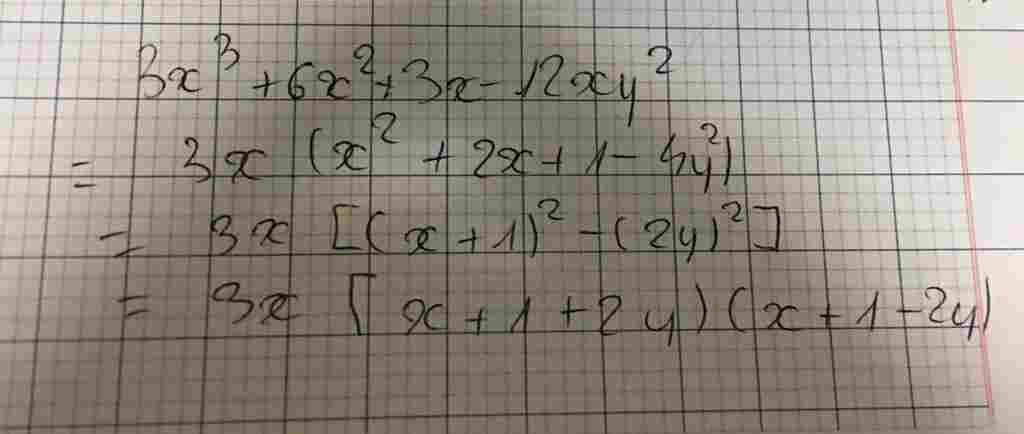 3x³ + 6x² + 3x - 12xy²
= 3x (x² + 2x + 1 - 4y²)
= 3x [(x + 1)² - (2y)²]
= 3x [x + 1 + 2y) (x + 1 - 2y)